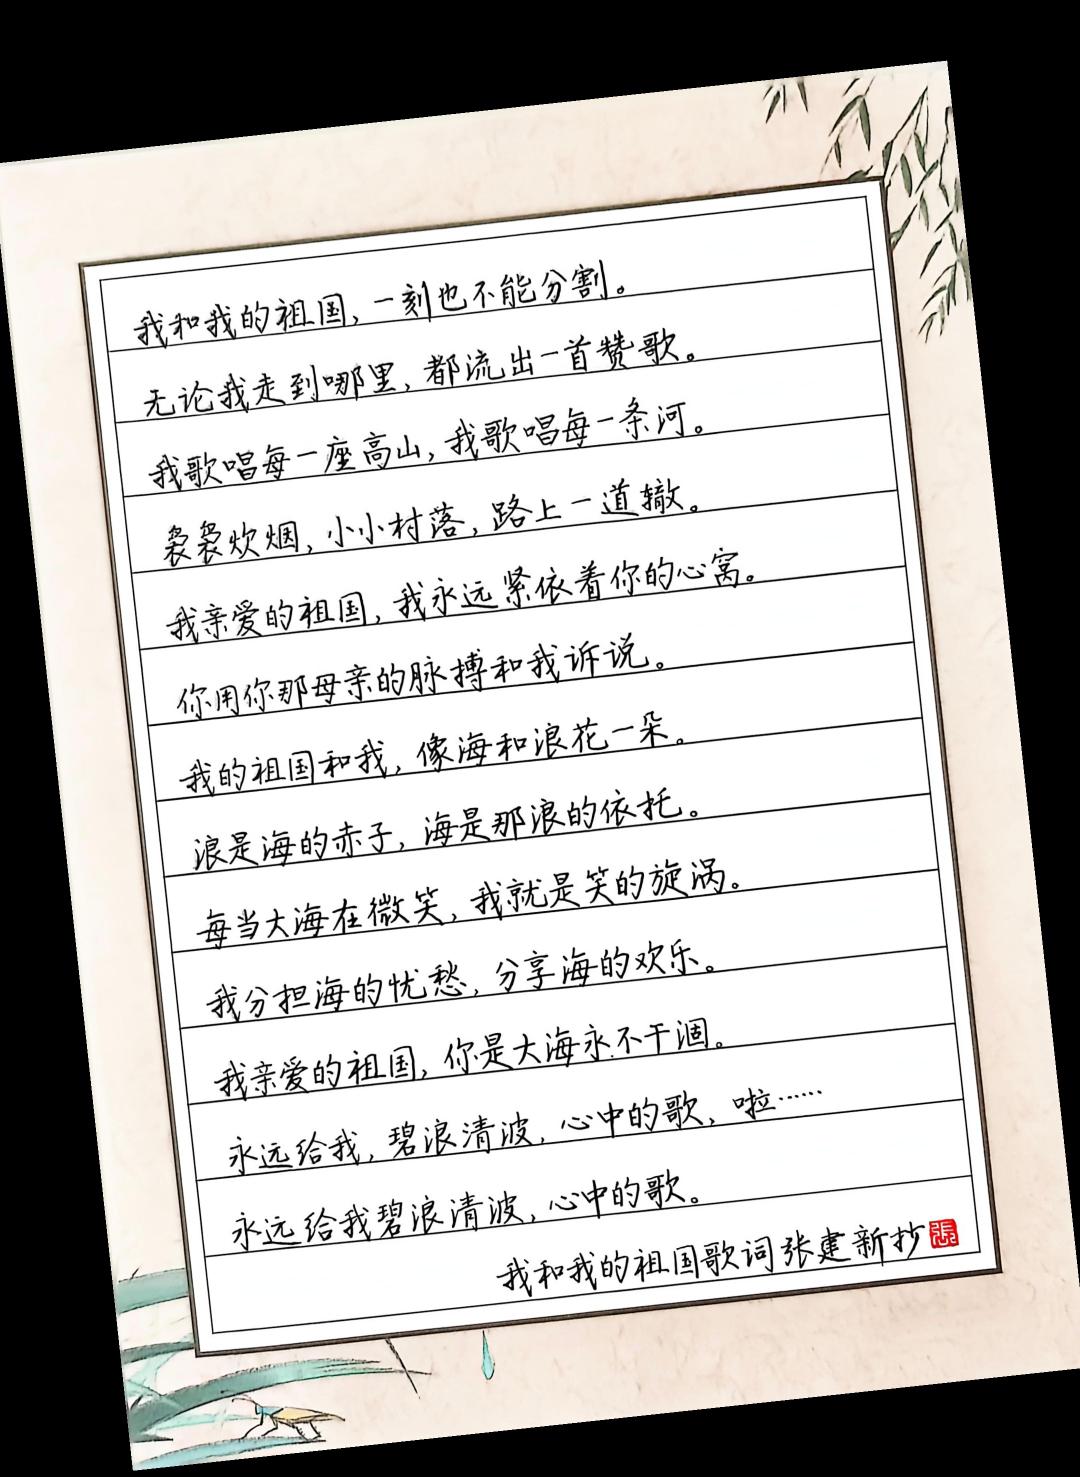 我和我的祖国，一刻也不能分割。
无论我走到哪里，都流出一首赞歌。
我歌唱每一座高山，我歌唱每一条河。
袅袅炊烟，小小村落，路上一道辙。
我亲爱的祖国，我永远紧依着你的心窝。
你用你那母亲的脉搏和我诉说。
我的祖国和我，像海和浪花一朵。
浪是海的赤子，海是那浪的依托。
每当大海在微笑，我就是笑的旋涡。
我分担海的忧愁，分享海的欢乐。
我亲爱的祖国，你是大海永不干涸。
永远给我，碧浪清波，心中的歌，啦……
永远给我碧浪清波，心中的歌。
我和我的祖国歌词张建新抄張